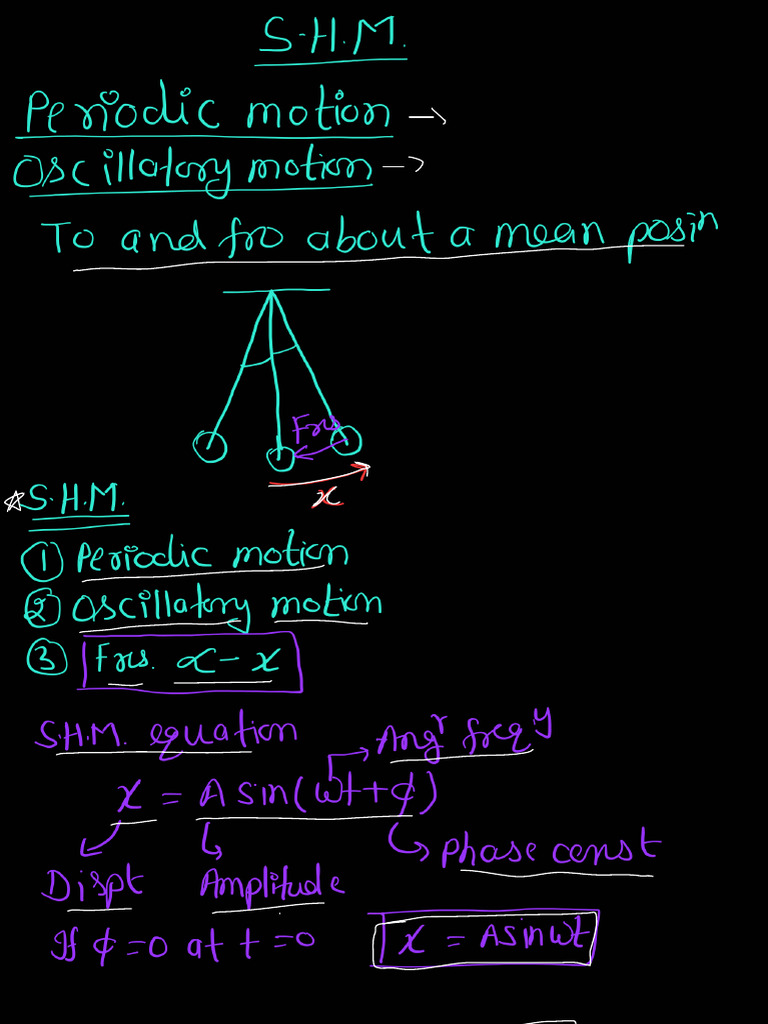 S.H.M.
Periodic motion →
Oscillatory motion →
To and fro about a mean posin
Frs
x
☆ S.H.M.
① Periodic motion
② Oscillatory motion
③ Frs. ∝ - x
S.H.M. equation
Angr freqy
x = A sin(ωt+ϕ)
Phase const
Dispt Amplitude
If ϕ=0 at t=0 x = A sin ωt